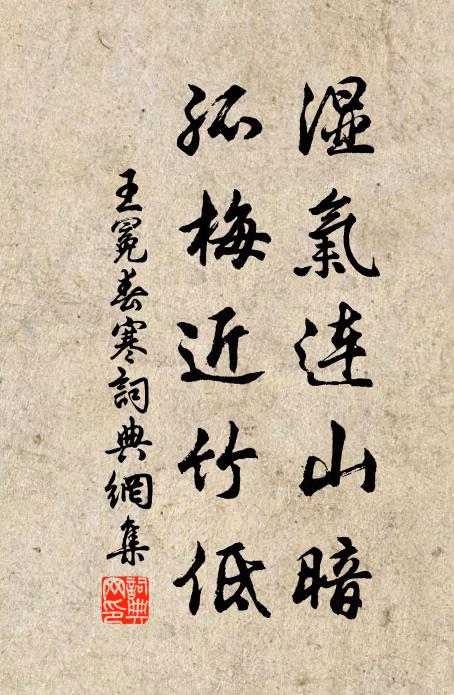 湿氣连山暗
孤梅近竹低
王冕春寒詞典網集
詞典網印